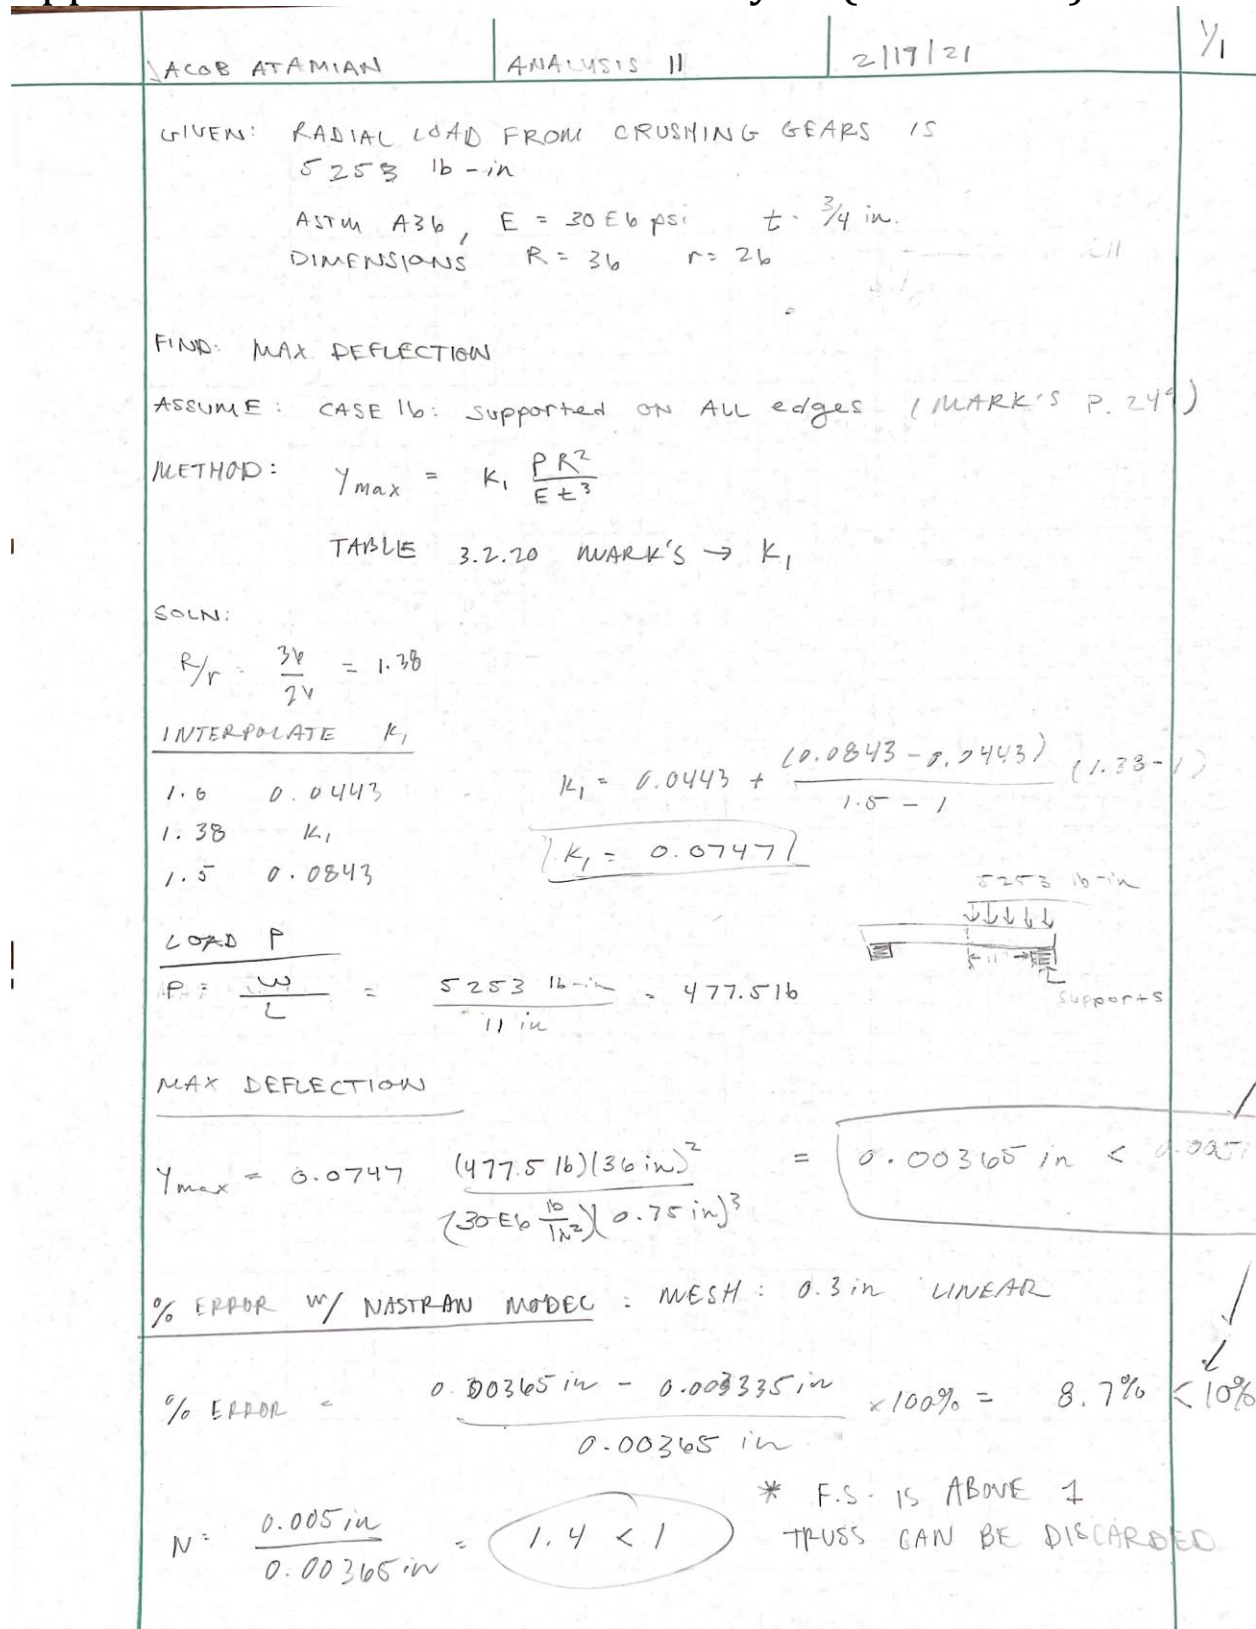 JACOB ATAMIAN ANALYSIS 11 2/19/21 1/1
GIVEN: RADIAL LOAD FROM CRUSHING GEARS IS
5253 lb-in
ASTM A36, E = 30E6 psi t = 3/4 in.
DIMENSIONS R = 36 r = 26
FIND: MAX DEFLECTION
ASSUME: CASE 16: Supported ON ALL edges (MARK'S P. 249)
METHOD: Ymax = K1 PR²/Et³
TABLE 3.2.20 MARK'S → K1
SOLN:
R/r = 36/26 = 1.38
INTERPOLATE K1
1.0 0.0443
1.38 K1
1.5 0.0843
K1 = 0.0443 + (0.0843 - 0.0443)/(1.5 - 1) (1.38 - 1)
K1 = 0.0747
5253 lb-in
11
supports
LOAD P
P = W/L = 5253 lb-in/11 in = 477.5 lb
MAX DEFLECTION
Ymax = 0.0747 (477.5 lb)(36 in)²/(30E6 lb/IN²)(0.75 in)³ = 0.00365 in < 0.005
% ERROR W/ NASTRAN MODEL: MESH: 0.3 in LINEAR
% ERROR = 0.00365 in - 0.003335 in/0.00365 in ×100% = 8.7% < 10%
N = 0.005 in/0.00365 in = 1.4 < 1
* F.S. IS ABOVE 1
TRUSS CAN BE DISCARDED